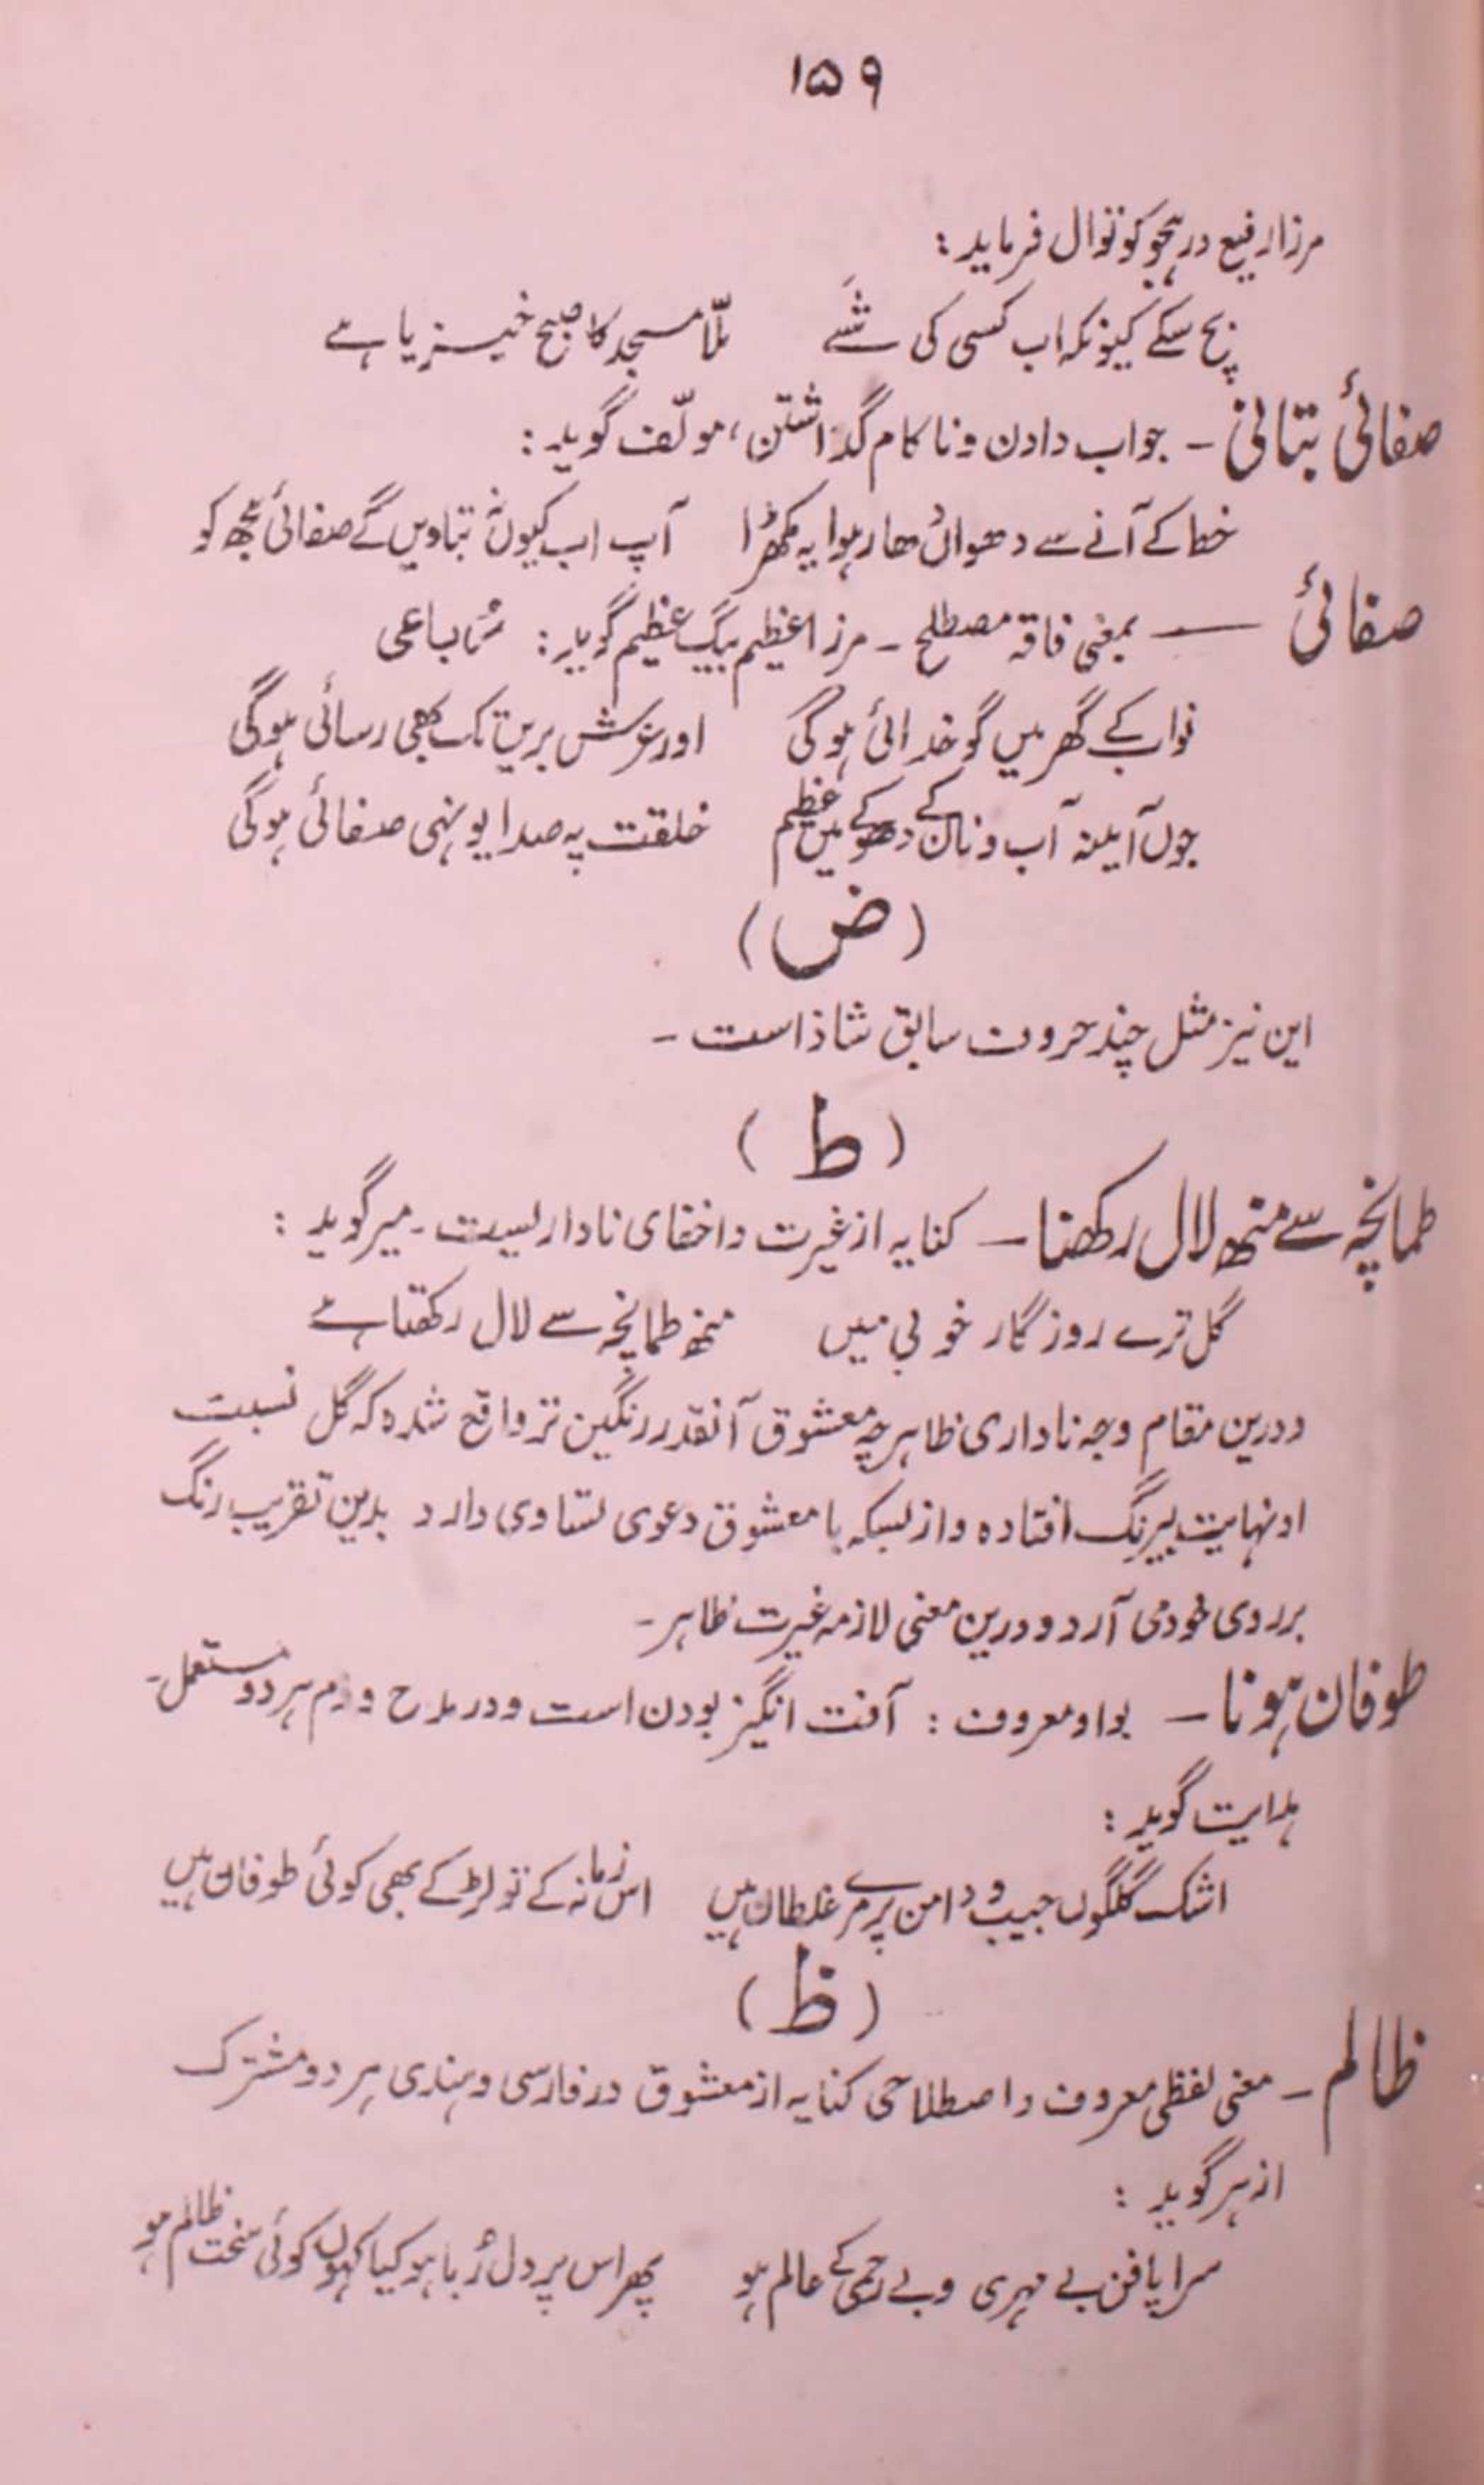 ۱۵۹
مرزا رفیع در ہجو کوتوال فرماید :
بچ سکے کیونکہ اب کسی کی شَے ملّا مسجد کا صبح خیزیا ہے
صفائی بتانی - جواب دادن و ناکام گذاشتن، مولّف گوید :
خط کے آنے سے دھواں دھار ہوا یہ مکھڑا آپ اب کیوں نہ بتاویں گے صفائی مجھ کو
صفائی — بمعنی فاقہ مصطلح - مرزا عظیم بیگ عظیم گوید : رُباعی
نواب کے گھر میں گو خدائی ہوگی اور عرش بریں تک بھی رسائی ہوگی
جوں آیینہ آب و ناں کے دھوکے میں عظیم خلقت پہ صدا یونہی صفائی ہوگی
(ض)
این نیز مثل چند حروف سابق شاذ است -
(ط)
طمانچہ سے منھ لال رکھنا - کنایہ از غیرت و اخفای ناداریست - میر گوید :
گل ترے روزگار خوبی میں منھ طمانچہ سے لال رکھتا ہے
و درین مقام وجہ ناداری ظاہر چہ معشوق آنقدر رنگین تر واقع شدہ کہ گل نسبت
او نہایت بیرنگ افتادہ و از بسکہ با معشوق دعوی تساوی دارد بدین تقریب رنگ
بر روی خود می آرد و درین معنی لازمہ غیرت ظاہر -
طوفان ہونا - بواو معروف : آفت انگیز بودن است و در مدح و ذم ہر دو مستعمل -
ہدایت گوید :
اشک گلگوں جیب و دامن پر مرے غلطاں ہیں اس زمانہ کے تو لڑکے بھی کوئی طوفاں ہیں
(ظ)
ظالم - معنی لفظی معروف و اصطلاحی کنایہ از معشوق در فارسی و ہندی ہر دو مشترک
از ہر گوید :
سراپا فن بے مہری و بے رحمی کے عالم ہو پھر اس پر دل رُبا ہو کیا کہوں کوئی سخت ظالم ہو